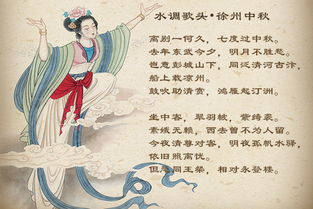 水调歌头·徐州中秋
离别一何久，七度过中秋。
去年东武今夕，明月不胜愁。
岂意彭城山下，同泛清河古汴，
船上载凉州。
鼓吹助清赏，鸿雁起汀洲。
坐中客，翠羽帔，紫绮裘。
素娥无赖，西去曾不为人留。
今夜清尊对客，明夜孤帆水驿，
依旧照离忧。
但恐同王粲，相对永登楼。